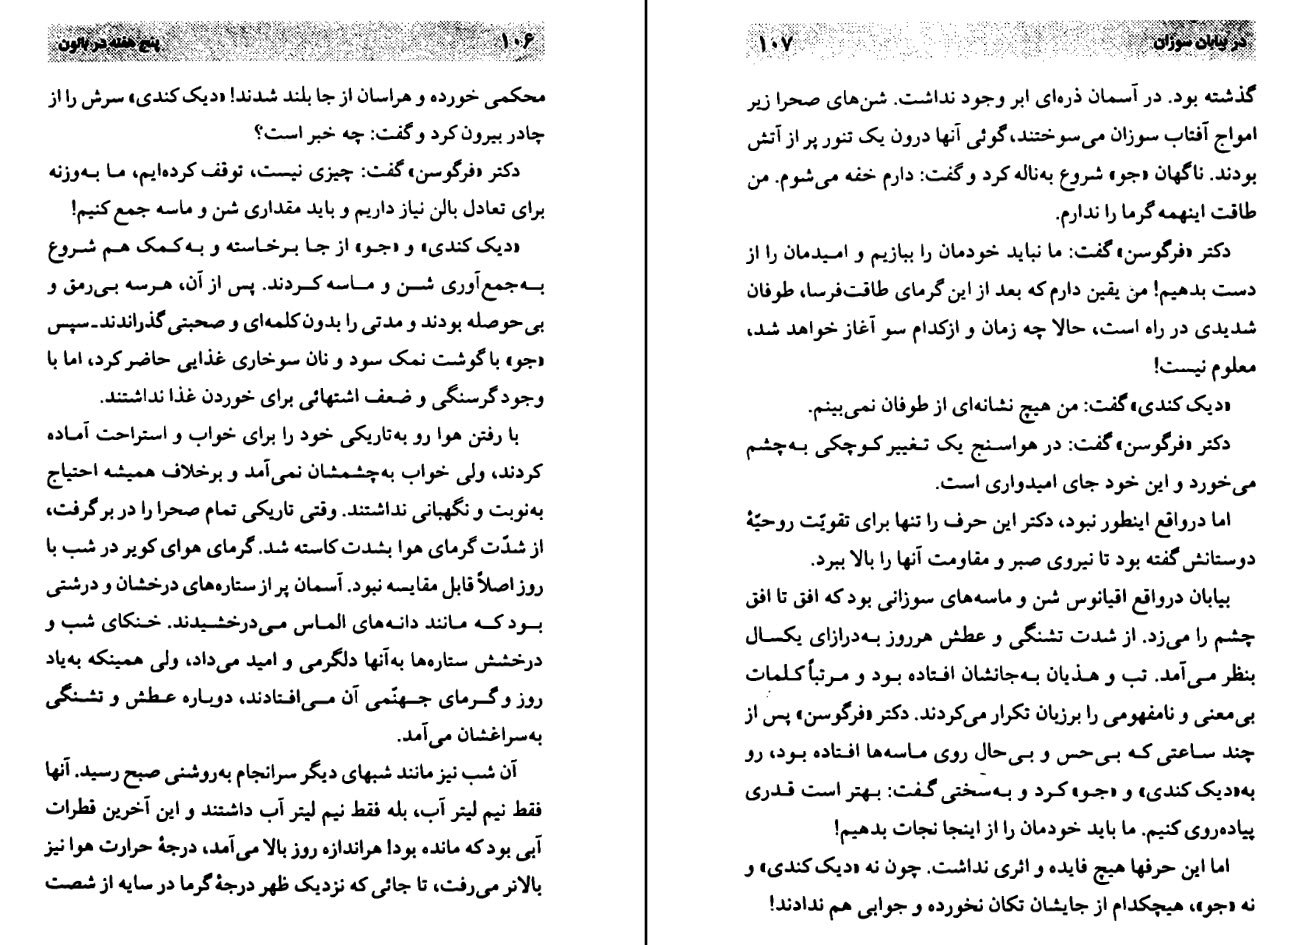 پنج هفته در بالون
۱۰۶
محکمی خورده و هراسان از جا بلند شدند! «دیک کندی» سرش را از
چادر بیرون کرد و گفت: چه خبر است؟
دکتر «فرگوسن» گفت: چیزی نیست، توقف کرده‌ایم، ما به‌وزنه
برای تعادل بالن نیاز داریم و باید مقداری شن و ماسه جمع کنیم!
«دیک کندی» و «جو» از جا برخاسته و به‌کمک هم شروع
به‌جمع‌آوری شن و ماسه کردند. پس از آن، هرسه بی‌رمق و
بی‌حوصله بودند و مدتی را بدون کلمه‌ای و صحبتی گذراندند-سپس
«جو» با گوشت نمک سود و نان سوخاری غذایی حاضر کرد، اما با
وجود گرسنگی و ضعف اشتهائی برای خوردن غذا نداشتند.
با رفتن هوا رو به‌تاریکی خود را برای خواب و استراحت آماده
کردند، ولی خواب به‌چشمشان نمی‌آمد و برخلاف همیشه احتیاج
به‌نوبت و نگهبانی نداشتند. وقتی تاریکی تمام صحرا را در بر گرفت،
از شدّت گرمای هوا بشدت کاسته شد. گرمای هوای کویر در شب با
روز اصلاً قابل مقایسه نبود. آسمان پر از ستاره‌های درخشان و درشتی
بود که مانند دانه‌های الماس می‌درخشیدند. خنکای شب و
درخشش ستاره‌ها به‌آنها دلگرمی و امید می‌داد، ولی همینکه به‌یاد
روز و گرمای جهنّمی آن می‌افتادند، دوباره عطش و تشنگی
به‌سراغشان می‌آمد.
آن شب نیز مانند شبهای دیگر سرانجام به‌روشنی صبح رسید. آنها
فقط نیم لیتر آب، بله فقط نیم لیتر آب داشتند و این آخرین قطرات
آبی بود که مانده بود! هراندازه روز بالا می‌آمد، درجهٔ حرارت هوا نیز
بالاتر می‌رفت، تا جائی که نزدیک ظهر درجهٔ گرما در سایه از شصت
در بیابان سوزان
۱۰۷
گذشته بود. در آسمان ذره‌ای ابر وجود نداشت. شن‌های صحرا زیر
امواج آفتاب سوزان می‌سوختند، گوئی آنها درون یک تنور پر از آتش
بودند. ناگهان «جو» شروع به‌ناله کرد و گفت: دارم خفه می‌شوم. من
طاقت اینهمه گرما را ندارم.
دکتر «فرگوسن» گفت: ما نباید خودمان را ببازیم و امیدمان را از
دست بدهیم! من یقین دارم که بعد از این گرمای طاقت‌فرسا، طوفان
شدیدی در راه است، حالا چه زمان و ازکدام سو آغاز خواهد شد،
معلوم نیست!
«دیک کندی» گفت: من هیچ نشانه‌ای از طوفان نمی‌بینم.
دکتر «فرگوسن» گفت: در هواسنج یک تغییر کوچکی به‌چشم
می‌خورد و این خود جای امیدواری است.
اما درواقع اینطور نبود، دکتر این حرف را تنها برای تقویّت روحیّهٔ
دوستانش گفته بود تا نیروی صبر و مقاومت آنها را بالا ببرد.
بیابان درواقع اقیانوس شن و ماسه‌های سوزانی بود که افق تا افق
چشم را می‌زد. از شدت تشنگی و عطش هرروز به‌درازای یکسال
بنظر می‌آمد. تب و هذیان به‌جانشان افتاده بود و مرتباً کلمات
بی‌معنی و نامفهومی را برزبان تکرار می‌کردند. دکتر «فرگوسن» پس از
چند ساعتی که بی‌حس و بی‌حال روی ماسه‌ها افتاده بود، رو
به‌«دیک کندی» و «جو» کرد و به‌سختی گفت: بهتر است قدری
پیاده‌روی کنیم. ما باید خودمان را از اینجا نجات بدهیم!
اما این حرفها هیچ فایده و اثری نداشت. چون نه «دیک کندی» و
نه «جو»، هیچکدام از جایشان تکان نخورده و جوابی هم ندادند!